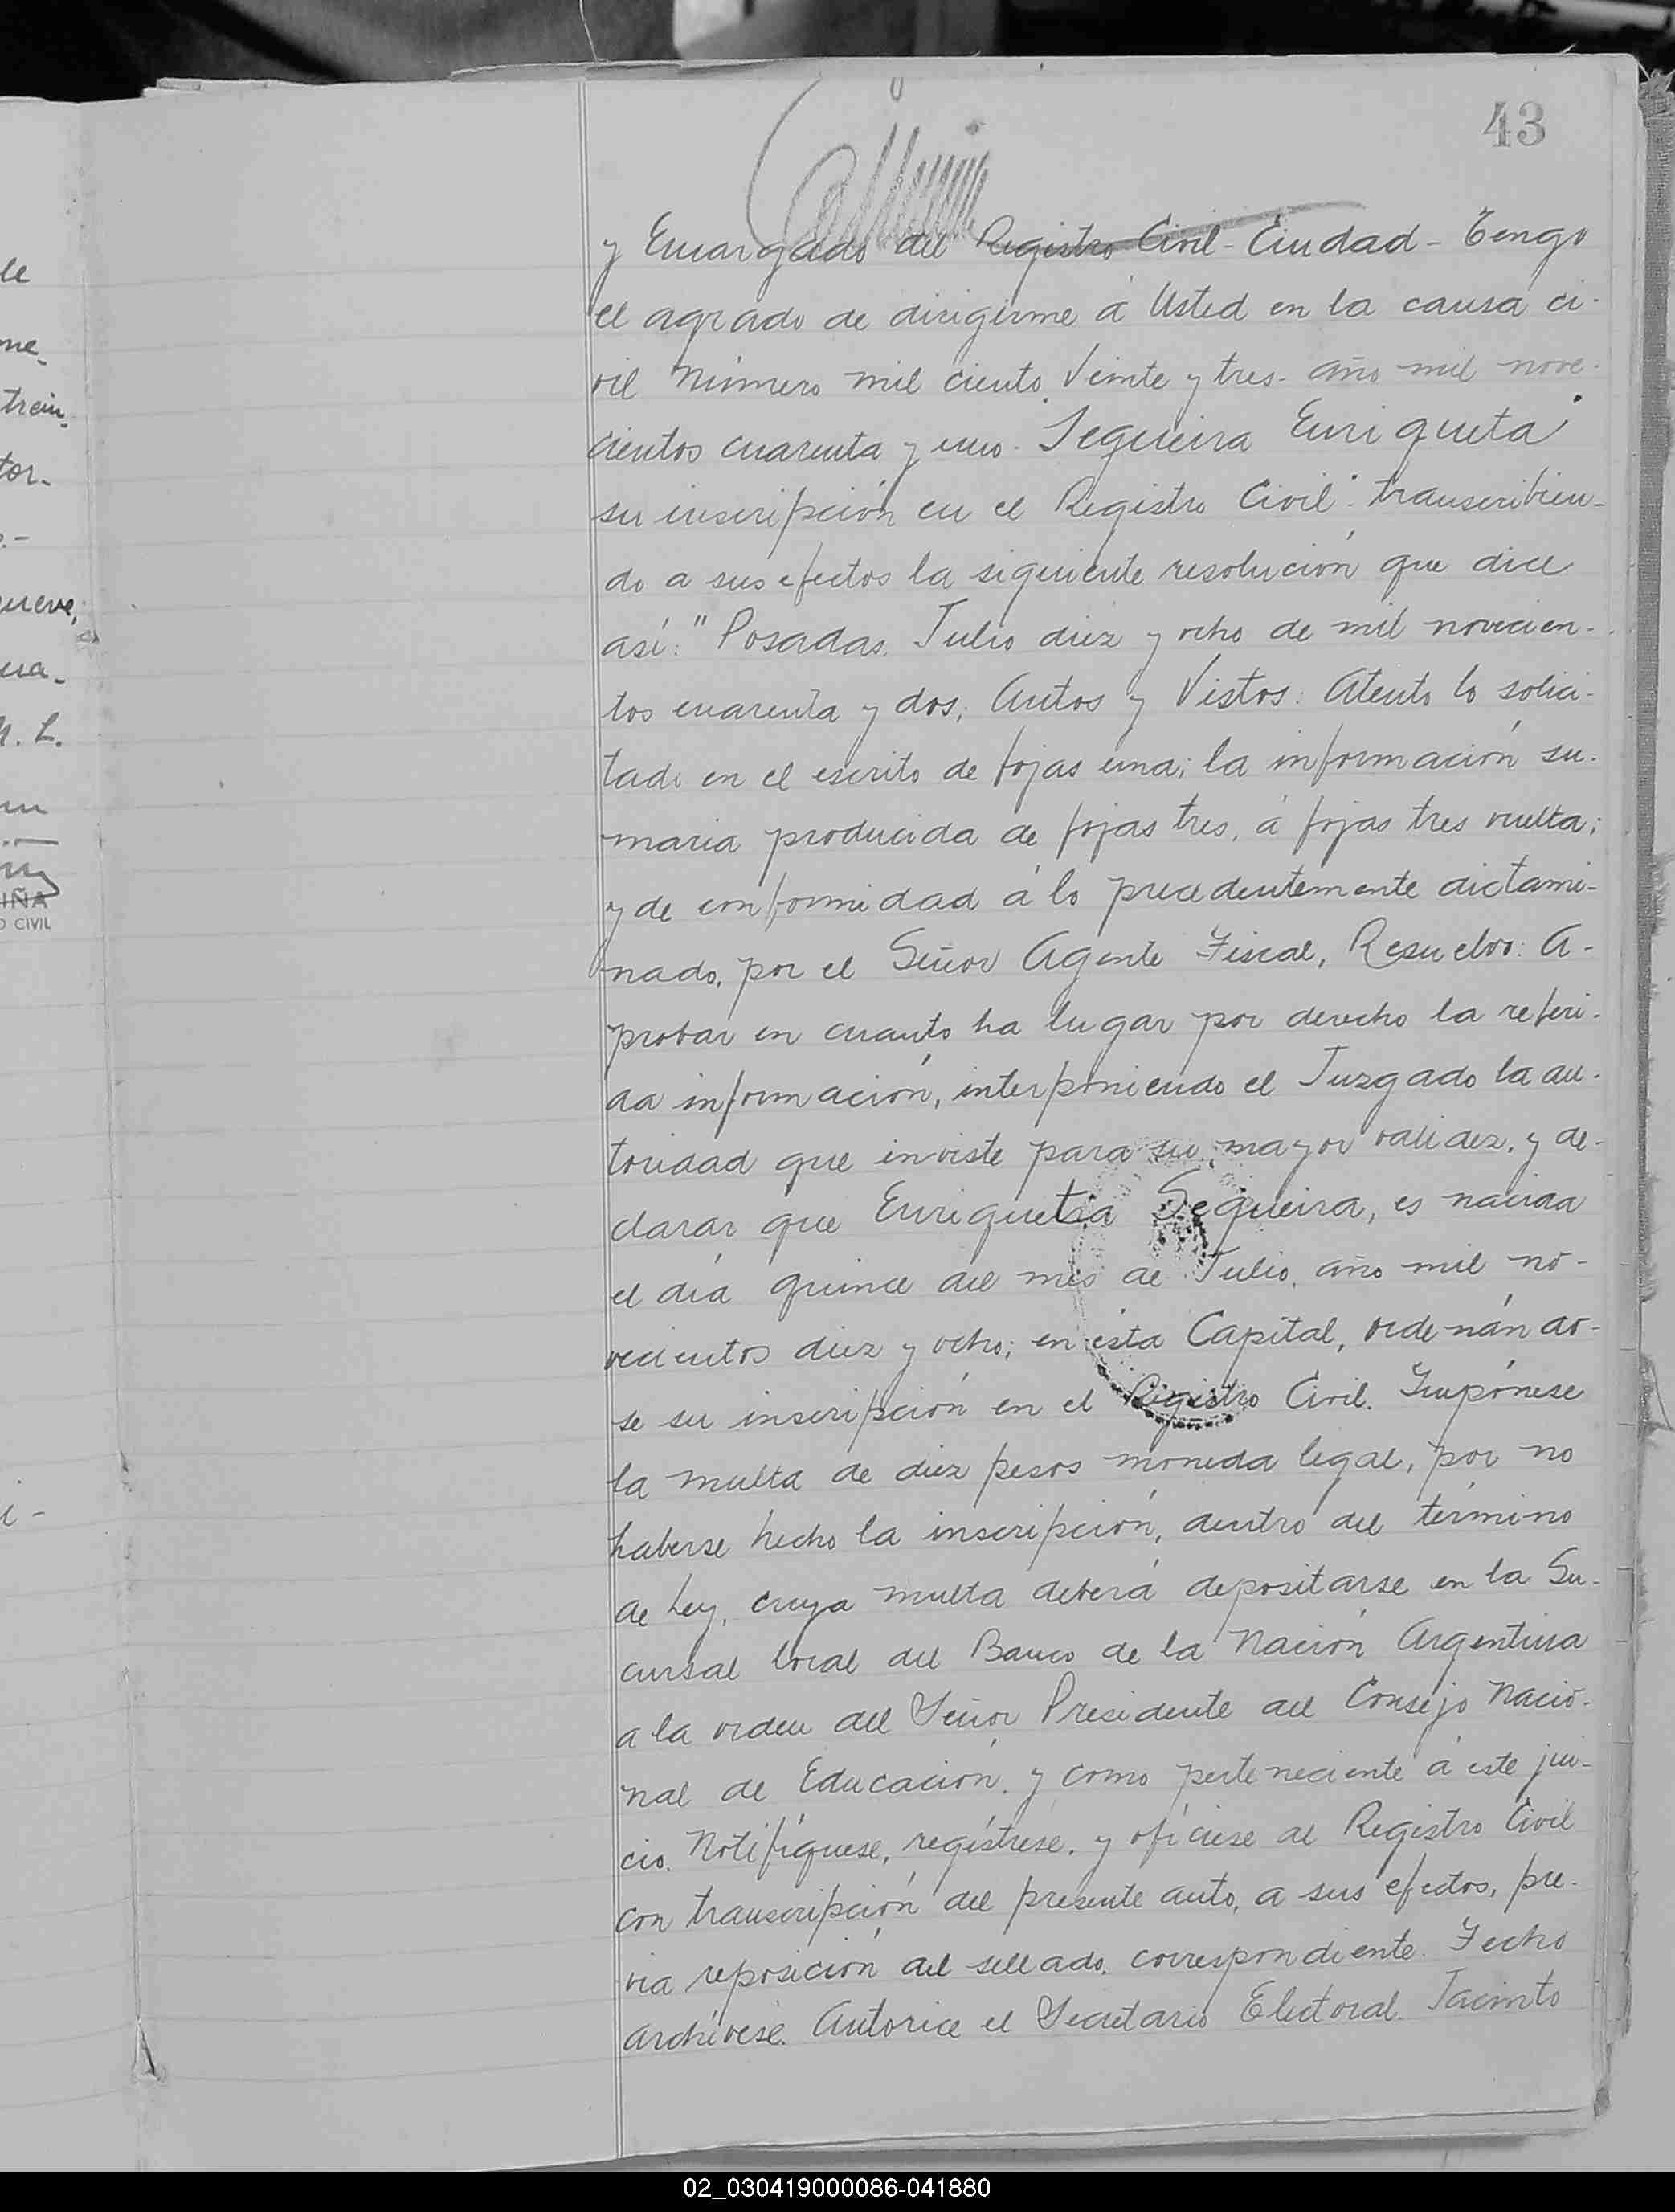 43
y Encargado del Registro Civil - Ciudad - Tengo
el agrado de dirigirme á Usted en la causa ci-
vil número mil ciento veinte y tres - año mil nove-
cientos cuarenta y uno. Sequeira Enriqueta"
su inscripción en el Registro Civil". transcribien-
do a sus efectos la siguiente resolución que dice
así: "Posadas. Julio diez y ocho de mil novecien-
tos cuarenta y dos; Autos y Vistos: Atento lo solici-
tado en el escrito de fojas una; la información su-
maria producida de fojas tres, á fojas tres vuelta;
y de conformidad á lo precedentemente dictami-
nado, por el Señor Agente Fiscal, Resuelvo: A-
probar en cuanto ha lugar por derecho la referi-
da información, interponiendo el Juzgado la au-
toridad que inviste para su mayor validez, y de-
clarar que Enriqueta Sequeira, es nacida
el día quince del mes de Julio, año mil no-
vecientos diez y ocho; en esta Capital, ordenándo-
se su inscripción en el Registro Civil. Impónese
la multa de diez pesos moneda legal, por no
haberse hecho la inscripción, dentro del término
de Ley, cuya multa deberá depositarse en la Su-
cursal local del Banco de la Nación Argentina
a la orden del Señor Presidente del Consejo Nacio-
nal de Educación, y como perteneciente á este jui-
cio. Notifíquese, regístrese, y ofíciese al Registro Civil
con transcripción del presente auto, a sus efectos, pre-
via reposición del sellado, correspondiente. Fecho
archívese. Autorice el Secretario Electoral. Jacinto
le
me-
trein-
tor-
.-
ueve,
ua-
L.
un
IÑA
O CIVIL
i-
02_030419000086-041880